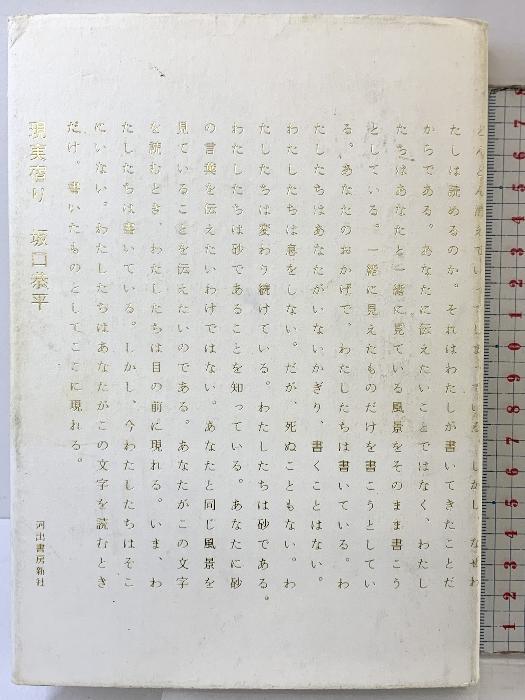 たしは読めるのか。それはわたしが書いてきたことだ
からである。あなたに伝えたいことではなく、わたし
たちはあなたと一緒に見ている風景をそのまま書こう
としている。一緒に見えたものだけを書こうとしてい
る。あなたのおかげで、わたしたちは書いている。わ
たしたちはあなたがいないかぎり、書くことはない。
わたしたちは息をしない。だが、死ぬこともない。わ
たしたちは変わり続けている。わたしたちは砂である。
わたしたちは砂であることを知っている。あなたに砂
の言葉を伝えたいわけではない。あなたと同じ風景を
見ていることを伝えたいのである。あなたがこの文字
を読むとき、わたしたちは目の前に現れる。いま、わ
たしたちは書いている。しかし、今わたしたちはそこ
にいない。わたしたちはあなたがこの文字を読むとき
だけ、書いたものとしてここに現れる。
現実宿り 坂口恭平
河出書房新社
1 2 3 4 5 6 7 8